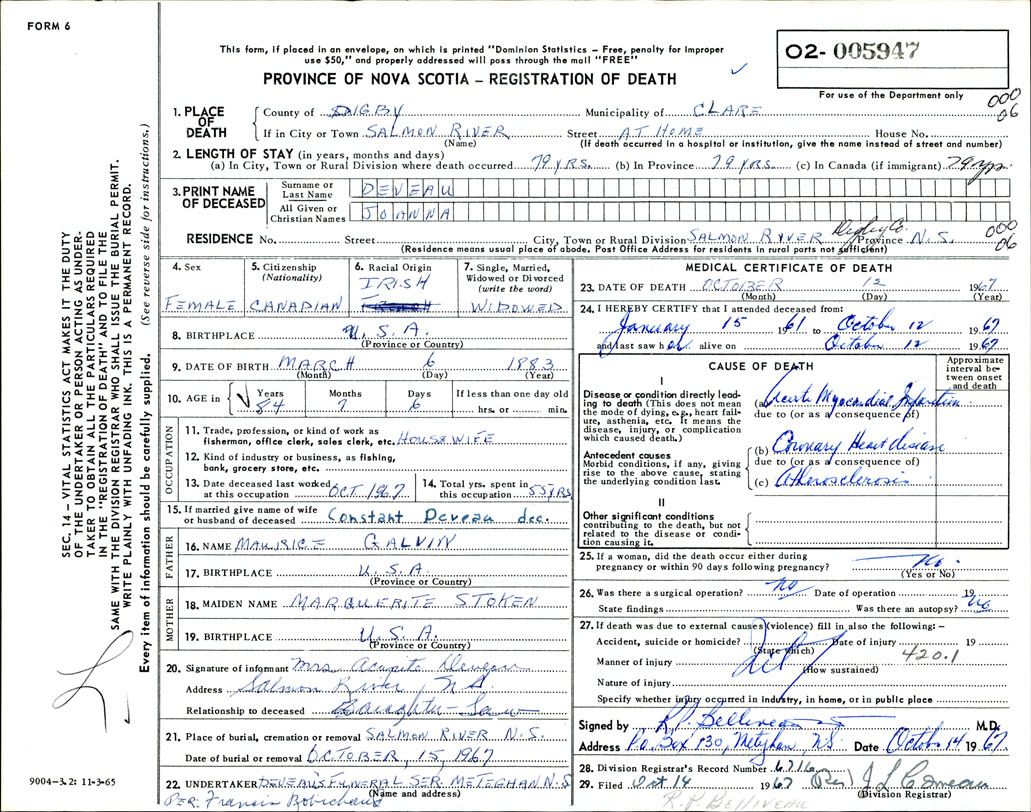 FORM 6
This form, if placed in an envelope, on which is printed "Dominion Statistics – Free, penalty for improper
use $50," and properly addressed will pass through the mail "FREE"
PROVINCE OF NOVA SCOTIA – REGISTRATION OF DEATH
02- 005947
For use of the Department only
000
06
SEC. 14 – VITAL STATISTICS ACT MAKES IT THE DUTY
OF THE UNDERTAKER OR PERSON ACTING AS UNDER-
TAKER TO OBTAIN ALL THE PARTICULARS REQUIRED
IN THE "REGISTRATION OF DEATH" AND TO FILE THE
SAME WITH THE DIVISION REGISTRAR WHO SHALL ISSUE THE BURIAL PERMIT.
WRITE PLAINLY WITH UNFADING INK. THIS IS A PERMANENT RECORD.
Every item of information should be carefully supplied. (See reverse side for instructions.)
1. PLACE OF DEATH
County of DIGBY Municipality of CLARE
If in City or Town SALMON RIVER Street AT HOME House No.
(Name) (If death occurred in a hospital or institution, give the name instead of street and number)
2. LENGTH OF STAY (in years, months and days)
(a) In City, Town or Rural Division where death occurred 79 YRS. (b) In Province 79 YRS. (c) In Canada (if immigrant) 79 yrs
3. PRINT NAME OF DECEASED
Surname or Last Name DEVEAU
All Given or Christian Names JOANNA
RESIDENCE No. Street City, Town or Rural Division SALMON RIVER Digby Co. Province N.S.
000
06
(Residence means usual place of abode. Post Office Address for residents in rural parts not sufficient)
4. Sex FEMALE
5. Citizenship (Nationality) CANADIAN
6. Racial Origin IRISH
7. Single, Married, Widowed or Divorced (write the word) WIDOWED
8. BIRTHPLACE U.S.A.
(Province or Country)
9. DATE OF BIRTH MARCH 6 1883
(Month) (Day) (Year)
10. AGE in Years 84 Months 7 Days 6 If less than one day old hrs. or min.
OCCUPATION
11. Trade, profession, or kind of work as
fisherman, office clerk, sales clerk, etc. HOUSEWIFE
12. Kind of industry or business, as fishing,
bank, grocery store, etc.
13. Date deceased last worked
at this occupation OCT 1967
14. Total yrs. spent in
this occupation 55 YRS
15. If married give name of wife
or husband of deceased Constant Deveau dec.
FATHER
16. NAME MAURICE GALVIN
17. BIRTHPLACE U.S.A.
(Province or Country)
MOTHER
18. MAIDEN NAME MARQUERITE STOKEN
19. BIRTHPLACE U.S.A.
(Province or Country)
20. Signature of informant Mrs. Deveau
Address Salmon River, N.S.
Relationship to deceased Daughter-Law
21. Place of burial, cremation or removal SALMON RIVER N.S.
Date of burial or removal OCTOBER, 15, 1967
22. UNDERTAKER DEVEAU'S FUNERAL SER. METEGHAN N.S
(Name and address)
PER: Francis Robichaud
9004-3.2: 11-3-65
MEDICAL CERTIFICATE OF DEATH
23. DATE OF DEATH OCTOBER 12 1967
(Month) (Day) (Year)
24. I HEREBY CERTIFY that I attended deceased from:
January 15 1961 to October 12 1967
and last saw her alive on October 12 1967
CAUSE OF DEATH
Approximate interval between onset and death
I
Disease or condition directly leading to death (This does not mean the mode of dying, e.g., heart failure, asthenia, etc. It means the disease, injury, or complication which caused death.)
(a) Acute Myocardial Infarction
due to (or as a consequence of)
Antecedent causes
Morbid conditions, if any, giving rise to the above cause, stating the underlying condition last.
(b) Coronary Heart disease
due to (or as a consequence of)
(c) Atherosclerosis
II
Other significant conditions
contributing to the death, but not related to the disease or condition causing it.
25. If a woman, did the death occur either during
pregnancy or within 90 days following pregnancy? No.
(Yes or No)
26. Was there a surgical operation? No Date of operation 19
State findings Was there an autopsy? No
27. If death was due to external causes (violence) fill in also the following: –
Accident, suicide or homicide? Date of injury 19
(State which)
420.1
Manner of injury (How sustained)
Nature of injury
Specify whether injury occurred in industry, in home, or in public place
Signed by R.P. Belliveau M.D.
Address P.O. Box 130, Meteghan, NS Date October 14 1967
28. Division Registrar's Record Number 6716
29. Filed Oct 14 1967 J L Comeau
(Division Registrar)
R.P. BELLIVEAU